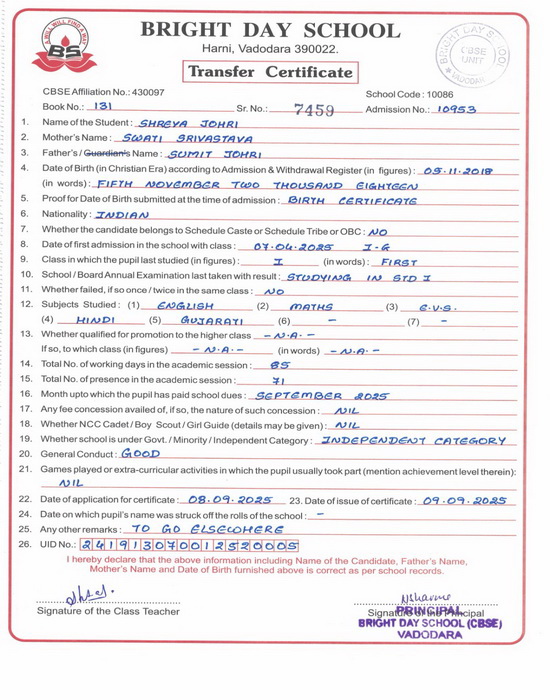 A WILL WILL FIND A WAY
BS
BRIGHT DAY SCHOOL
Harni, Vadodara 390022.
Transfer Certificate
BRIGHT DAY SCHOOL
CBSE
UNIT
VADODARA
CBSE Affiliation No.: 430097 School Code : 10086
Book No.: 131 Sr. No.: 7459 Admission No.: 10953
1. Name of the Student : SHREYA JOHRI
2. Mother's Name : SWATI SRIVASTAVA
3. Father's / Guardian's Name : SUMIT JOHRI
4. Date of Birth (in Christian Era) according to Admission & Withdrawal Register (in figures) : 05.11.2018
(in words) : FIFTH NOVEMBER TWO THOUSAND EIGHTEEN
5. Proof for Date of Birth submitted at the time of admission : BIRTH CERTIFICATE
6. Nationality : INDIAN
7. Whether the candidate belongs to Schedule Caste or Schedule Tribe or OBC : NO
8. Date of first admission in the school with class : 07.04.2025 I-G
9. Class in which the pupil last studied (in figures) : I (in words) : FIRST
10. School / Board Annual Examination last taken with result : STUDYING IN STD I
11. Whether failed, if so once / twice in the same class : NO
12. Subjects Studied : (1) ENGLISH (2) MATHS (3) E.V.S.
(4) HINDI (5) GUJARATI (6) - (7) -
13. Whether qualified for promotion to the higher class - N.A. -
If so, to which class (in figures) - N.A. - (in words) - N.A. -
14. Total No. of working days in the academic session : 85
15. Total No. of presence in the academic session : 71
16. Month upto which the pupil has paid school dues : SEPTEMBER 2025
17. Any fee concession availed of, if so, the nature of such concession : NIL
18. Whether NCC Cadet / Boy Scout / Girl Guide (details may be given) : NIL
19. Whether school is under Govt. / Minority / Independent Category : INDEPENDENT CATEGORY
20. General Conduct : GOOD
21. Games played or extra-curricular activities in which the pupil usually took part (mention achievement level therein):
NIL
22. Date of application for certificate : 08.09.2025 23. Date of issue of certificate : 09.09.2025
24. Date on which pupil's name was struck off the rolls of the school : -
25. Any other remarks : TO GO ELSEWHERE
26. UID No.: 241913070012520005
I hereby declare that the above information including Name of the Candidate, Father's Name,
Mother's Name and Date of Birth furnished above is correct as per school records.
Signature of the Class Teacher Signature of the Principal
PRINCIPAL
BRIGHT DAY SCHOOL (CBSE)
VADODARA